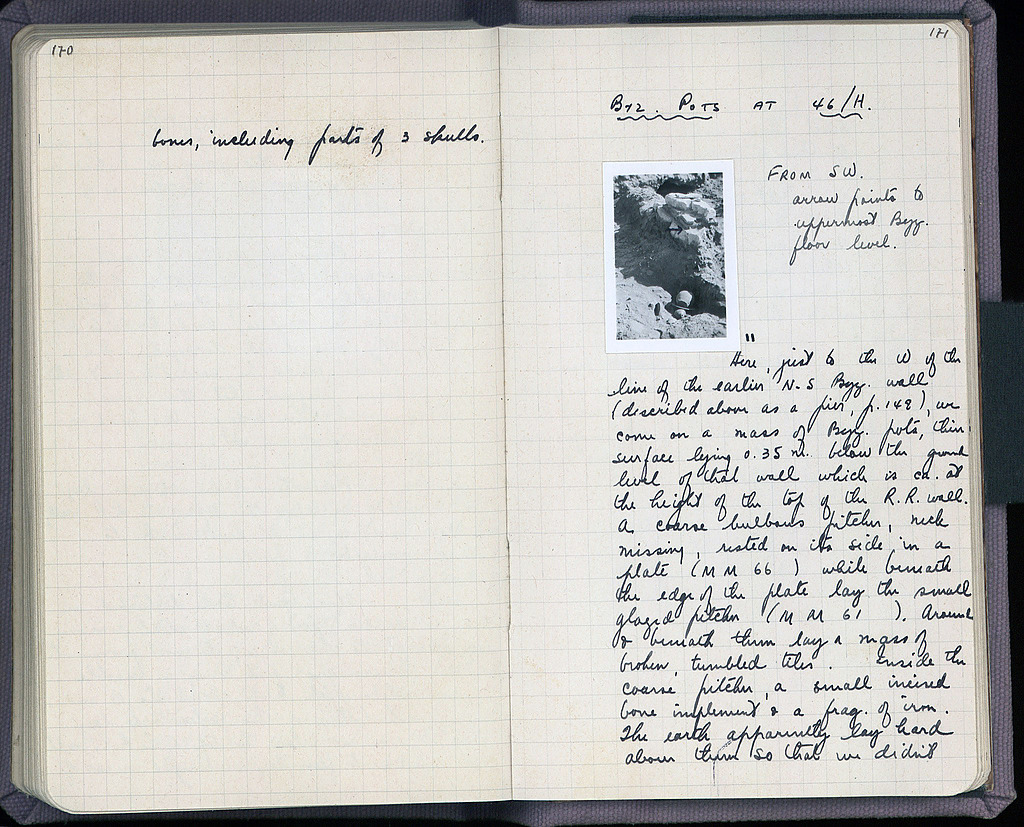 170
bones, including parts of 3 skulls.
171
Byz. Pots at 46/H.
From SW.
arrow points to
uppermost Byz.
floor level.
"
Here, just to the W of the
line of the earlier N-S Byz. wall
(described above as a pier, p. 149), we
come on a mass of Byz. pots, their
surface lying 0.35 m. below the ground
level of that wall which is ca. at
the height of the top of the R.R. wall.
A coarse bulbous pitcher, neck
missing, rested on its side in a
plate (MM 66 ) while beneath
the edge of the plate lay the small
glazed pitcher (MM 61 ). Around
& beneath them lay a mass of
broken, tumbled tiles. Inside the
coarse pitcher, a small incised
bone implement & a frag. of iron.
The earth apparently lay hard
above them so that we didn't